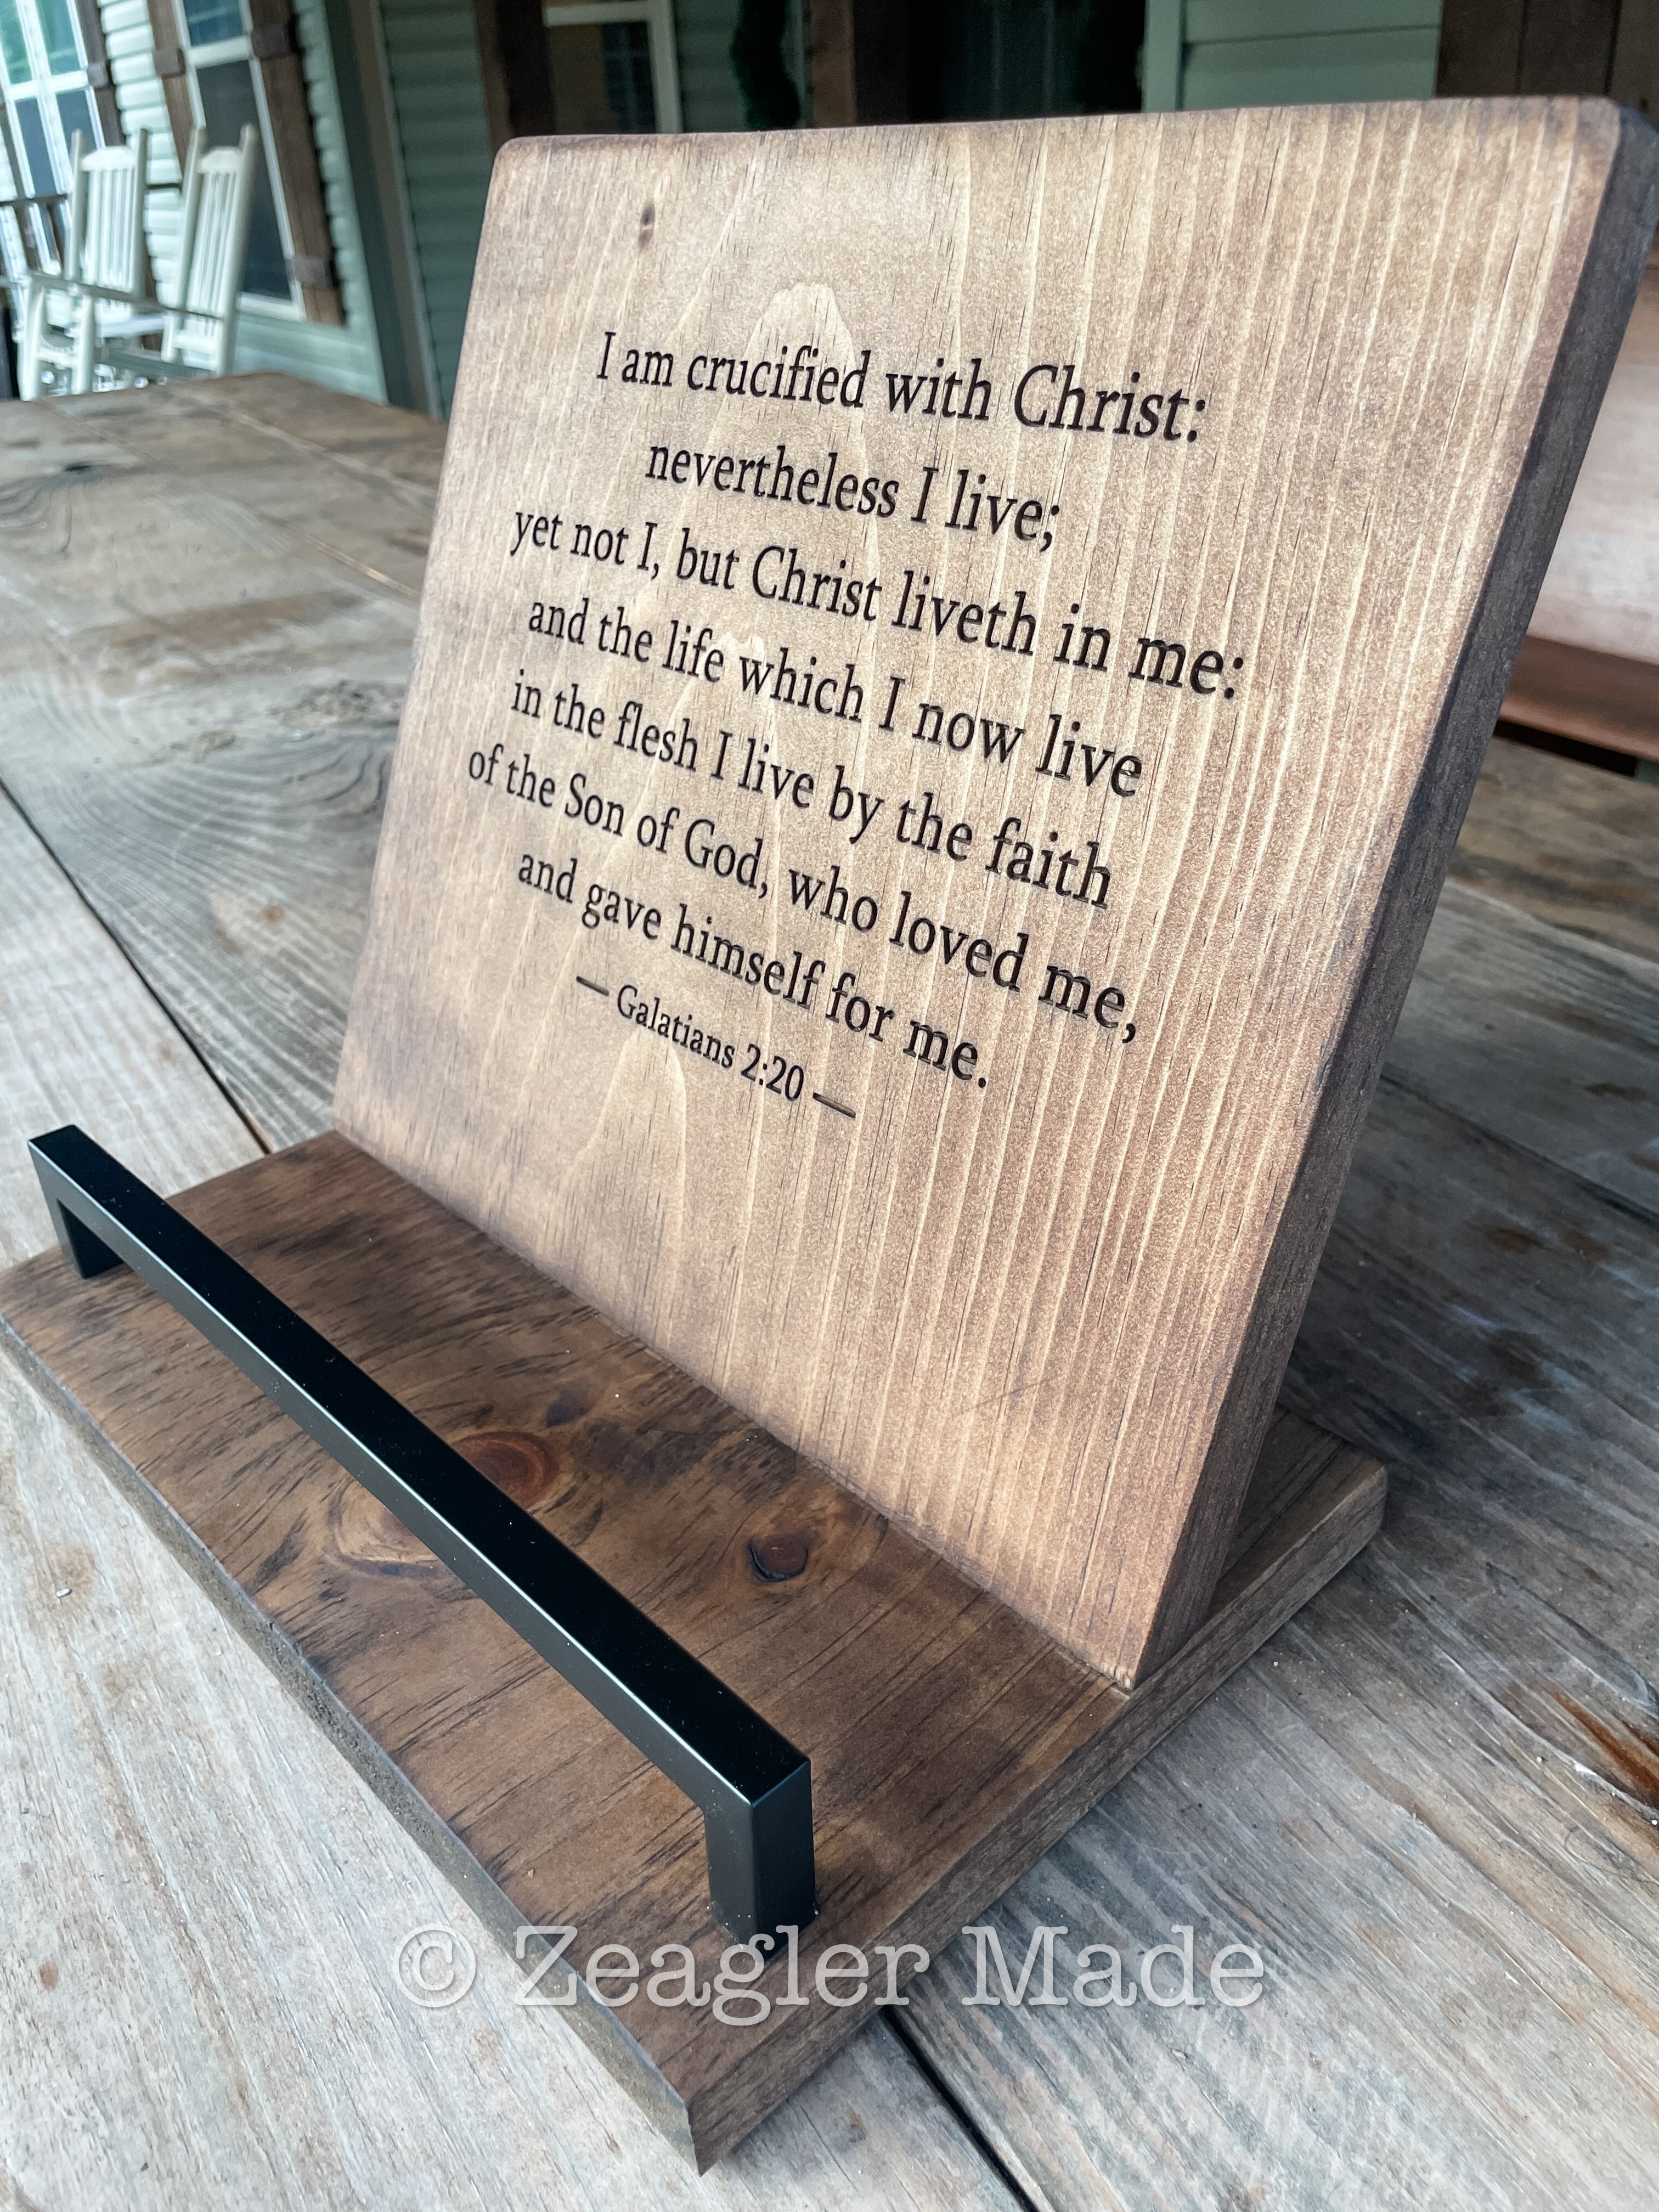 I am crucified with Christ:
nevertheless I live;
yet not I, but Christ liveth in me:
and the life which I now live
in the flesh I live by the faith
of the Son of God, who loved me,
and gave himself for me.
— Galatians 2:20 —
© Zeagler Made